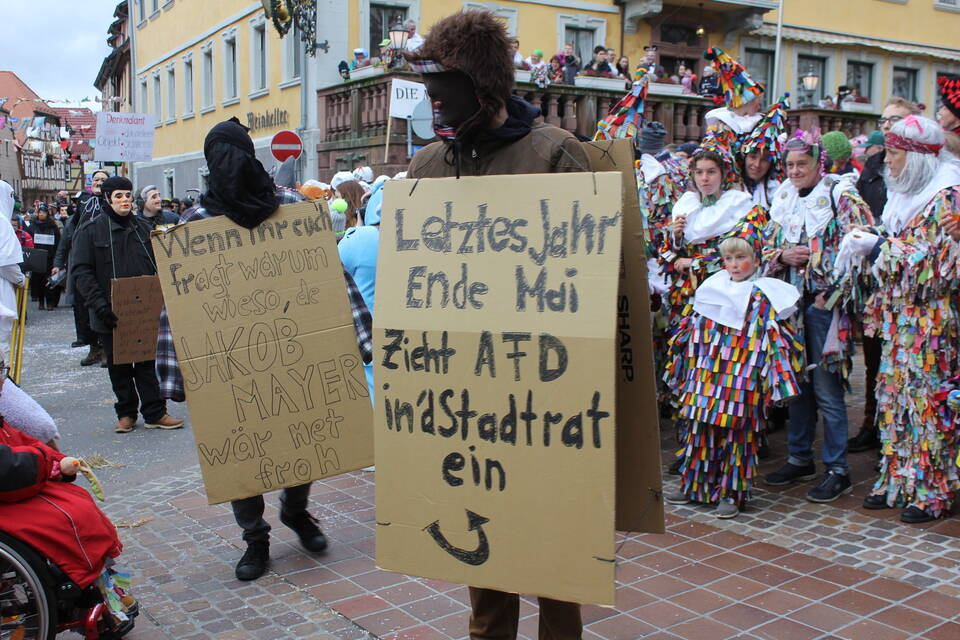 Weinkeller
Denkmalamt
DIE
Wenn ihr euch
fragt warum
wieso, de
JAKOB
MAYER
wär net
froh
Letztes Jahr
Ende Mai
Zieht AFD
in'd Stadtrat
ein
SHARP